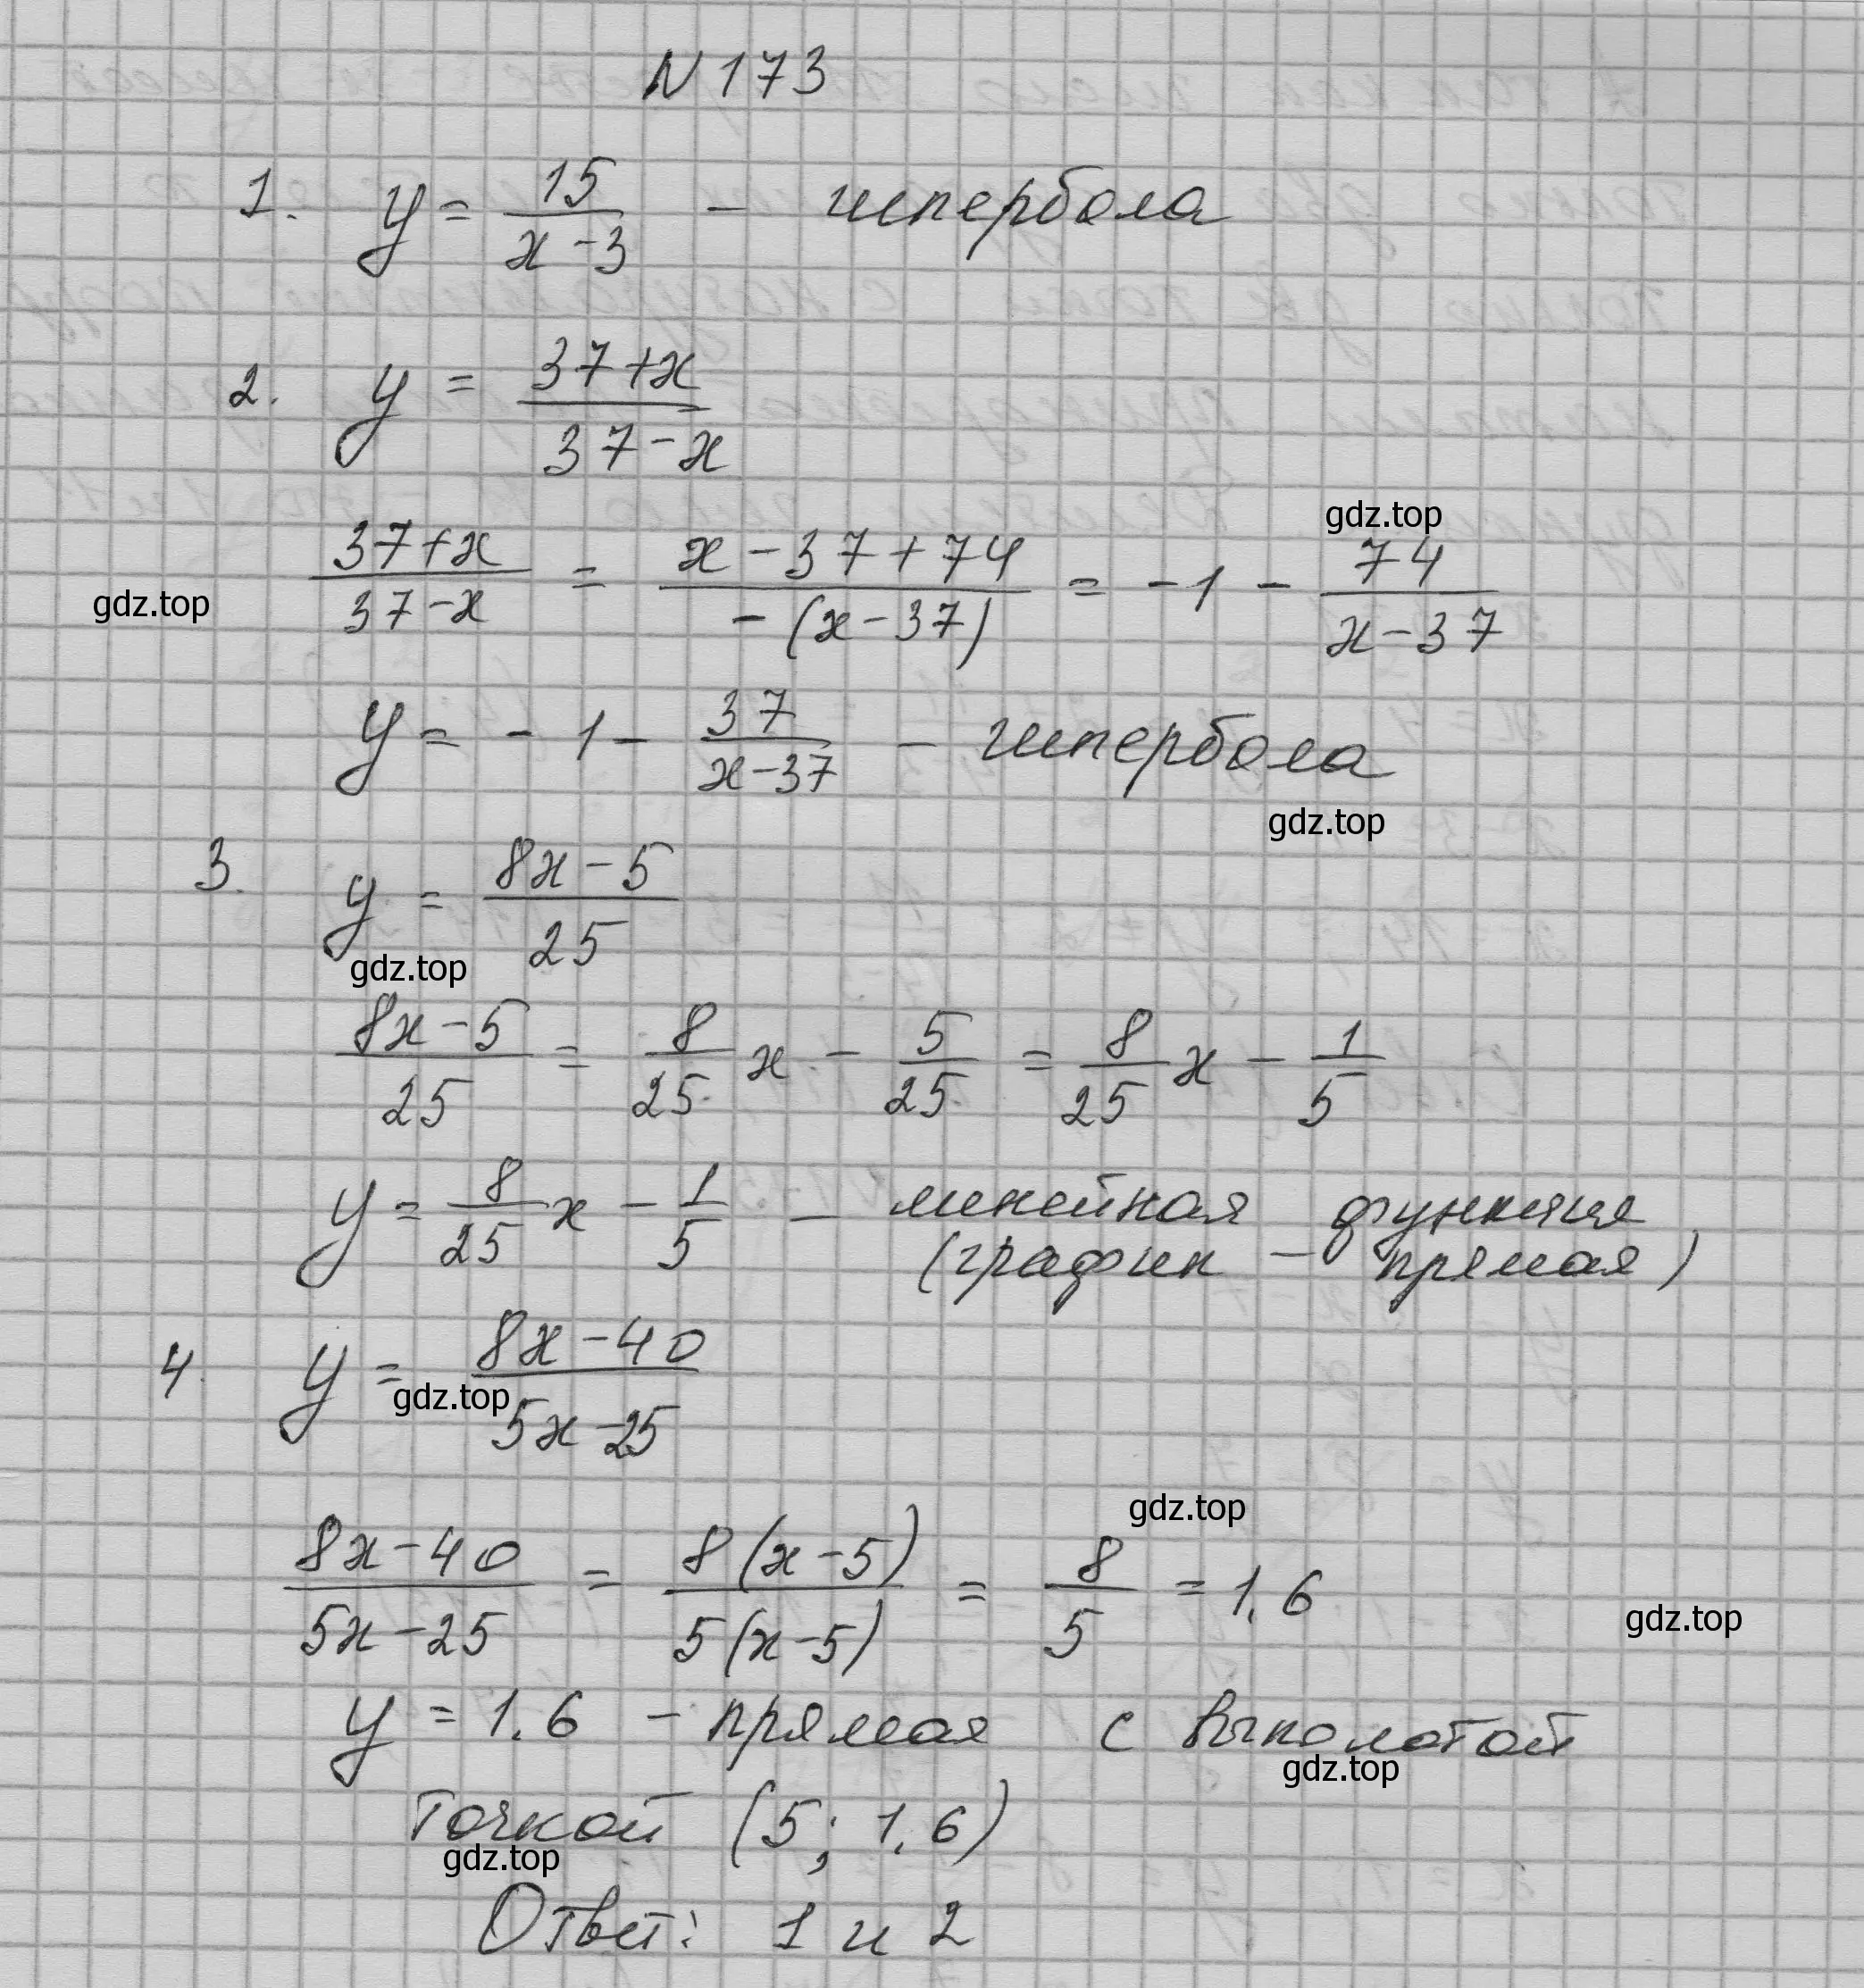 N 173
1. y = 15/(x-3) - гипербола
2. y = (37+x)/(37-x)
gdz.top
(37+x)/(37-x) = (x-37+74)/(-(x-37)) = -1 - 74/(x-37)
gdz.top
y = -1 - 37/(x-37) - гипербола
gdz.top
3. y = (8x-5)/25
gdz.top
(8x-5)/25 = 8/25 x - 5/25 = 8/25 x - 1/5
y = 8/25 x - 1/5 - линейная функция
(график - прямая)
4. y = (8x-40)/(5x-25)
gdz.top
gdz.top
(8x-40)/(5x-25) = 8(x-5)/5(x-5) = 8/5 = 1.6
gdz.top
y = 1.6 - прямая с выколотой
gdz.top
точкой (5; 1.6)
gdz.top
Ответ: 1 и 2